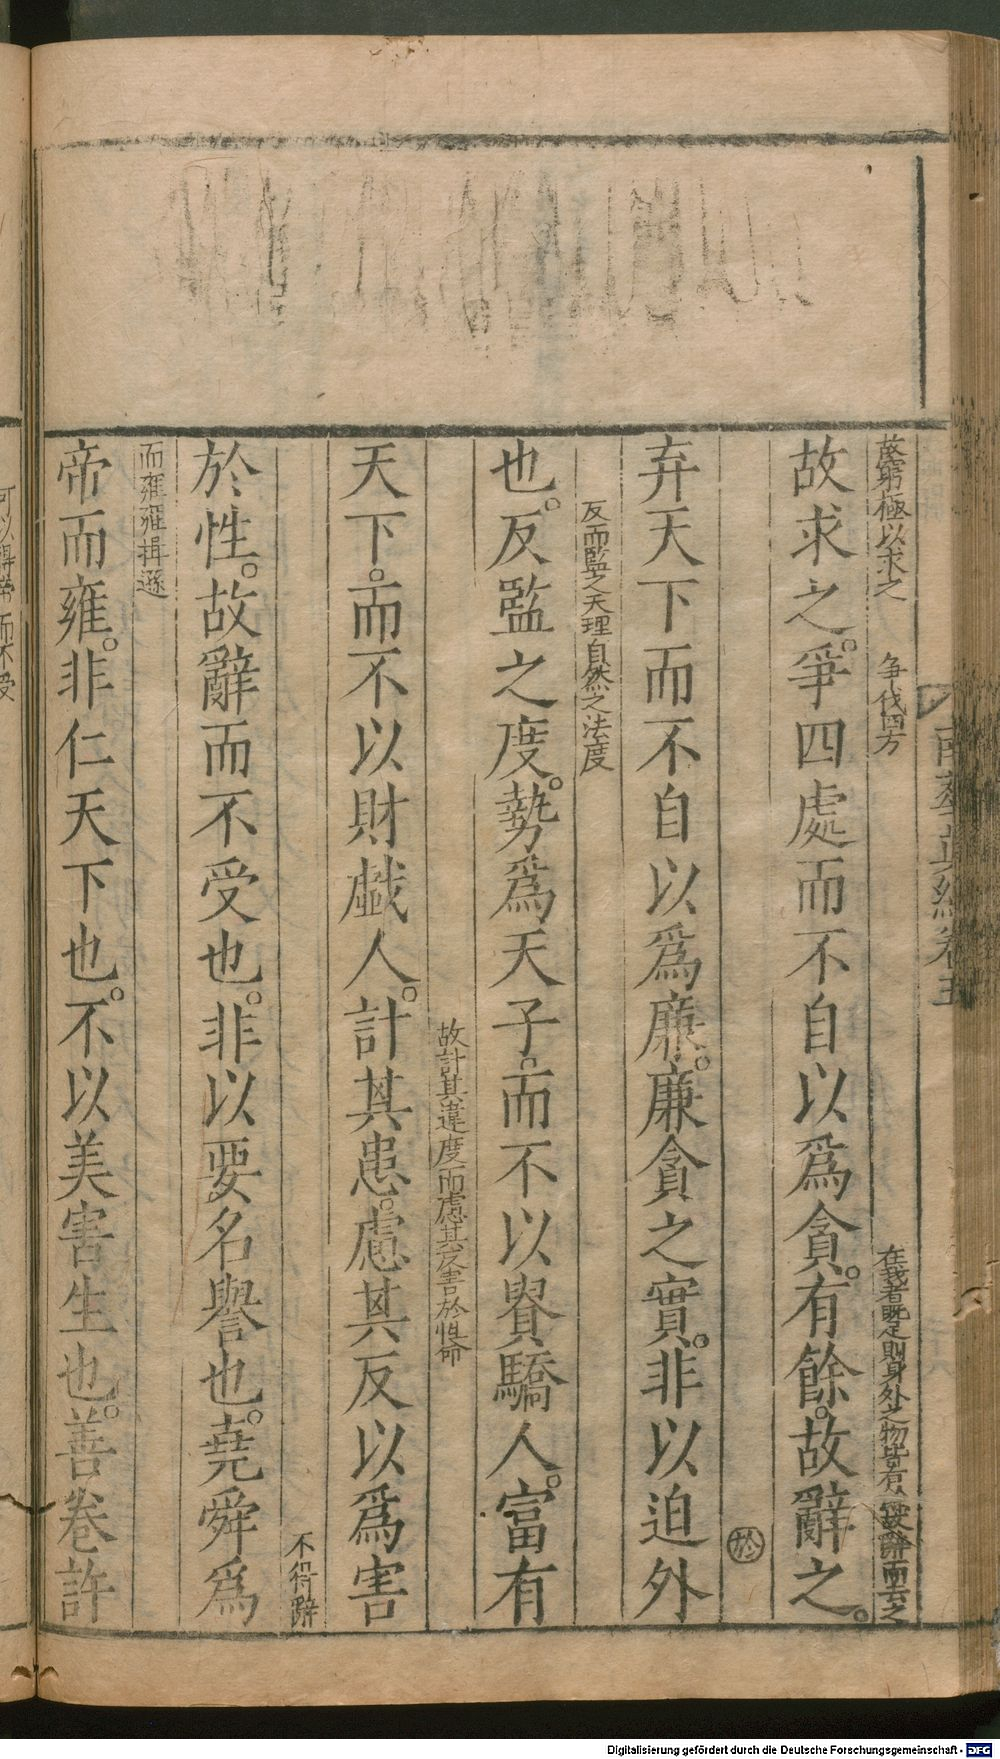 南華真經卷五
故窮極以求之 争伐四方 在我者既足則身外之物皆有故辭而去之
故求之。爭四處而不自以爲貪。有餘。故辭之。
於
弃天下而不自以爲廉。廉貪之實。非以迫外
反而監之天理自然之法度
也。反監之度。勢爲天子。而不以貴驕人。富有
故計其違度而慮其反害於性命
天下。而不以財戯人。計其患。慮其反以爲害
不得辭
於性。故辭而不受也。非以要名譽也。堯舜爲
而雍雍揖遜
帝而雍。非仁天下也。不以美害生也。善卷許
可以得帝而不受
Digitalisierung gefördert durch die Deutsche Forschungsgemeinschaft - DFG